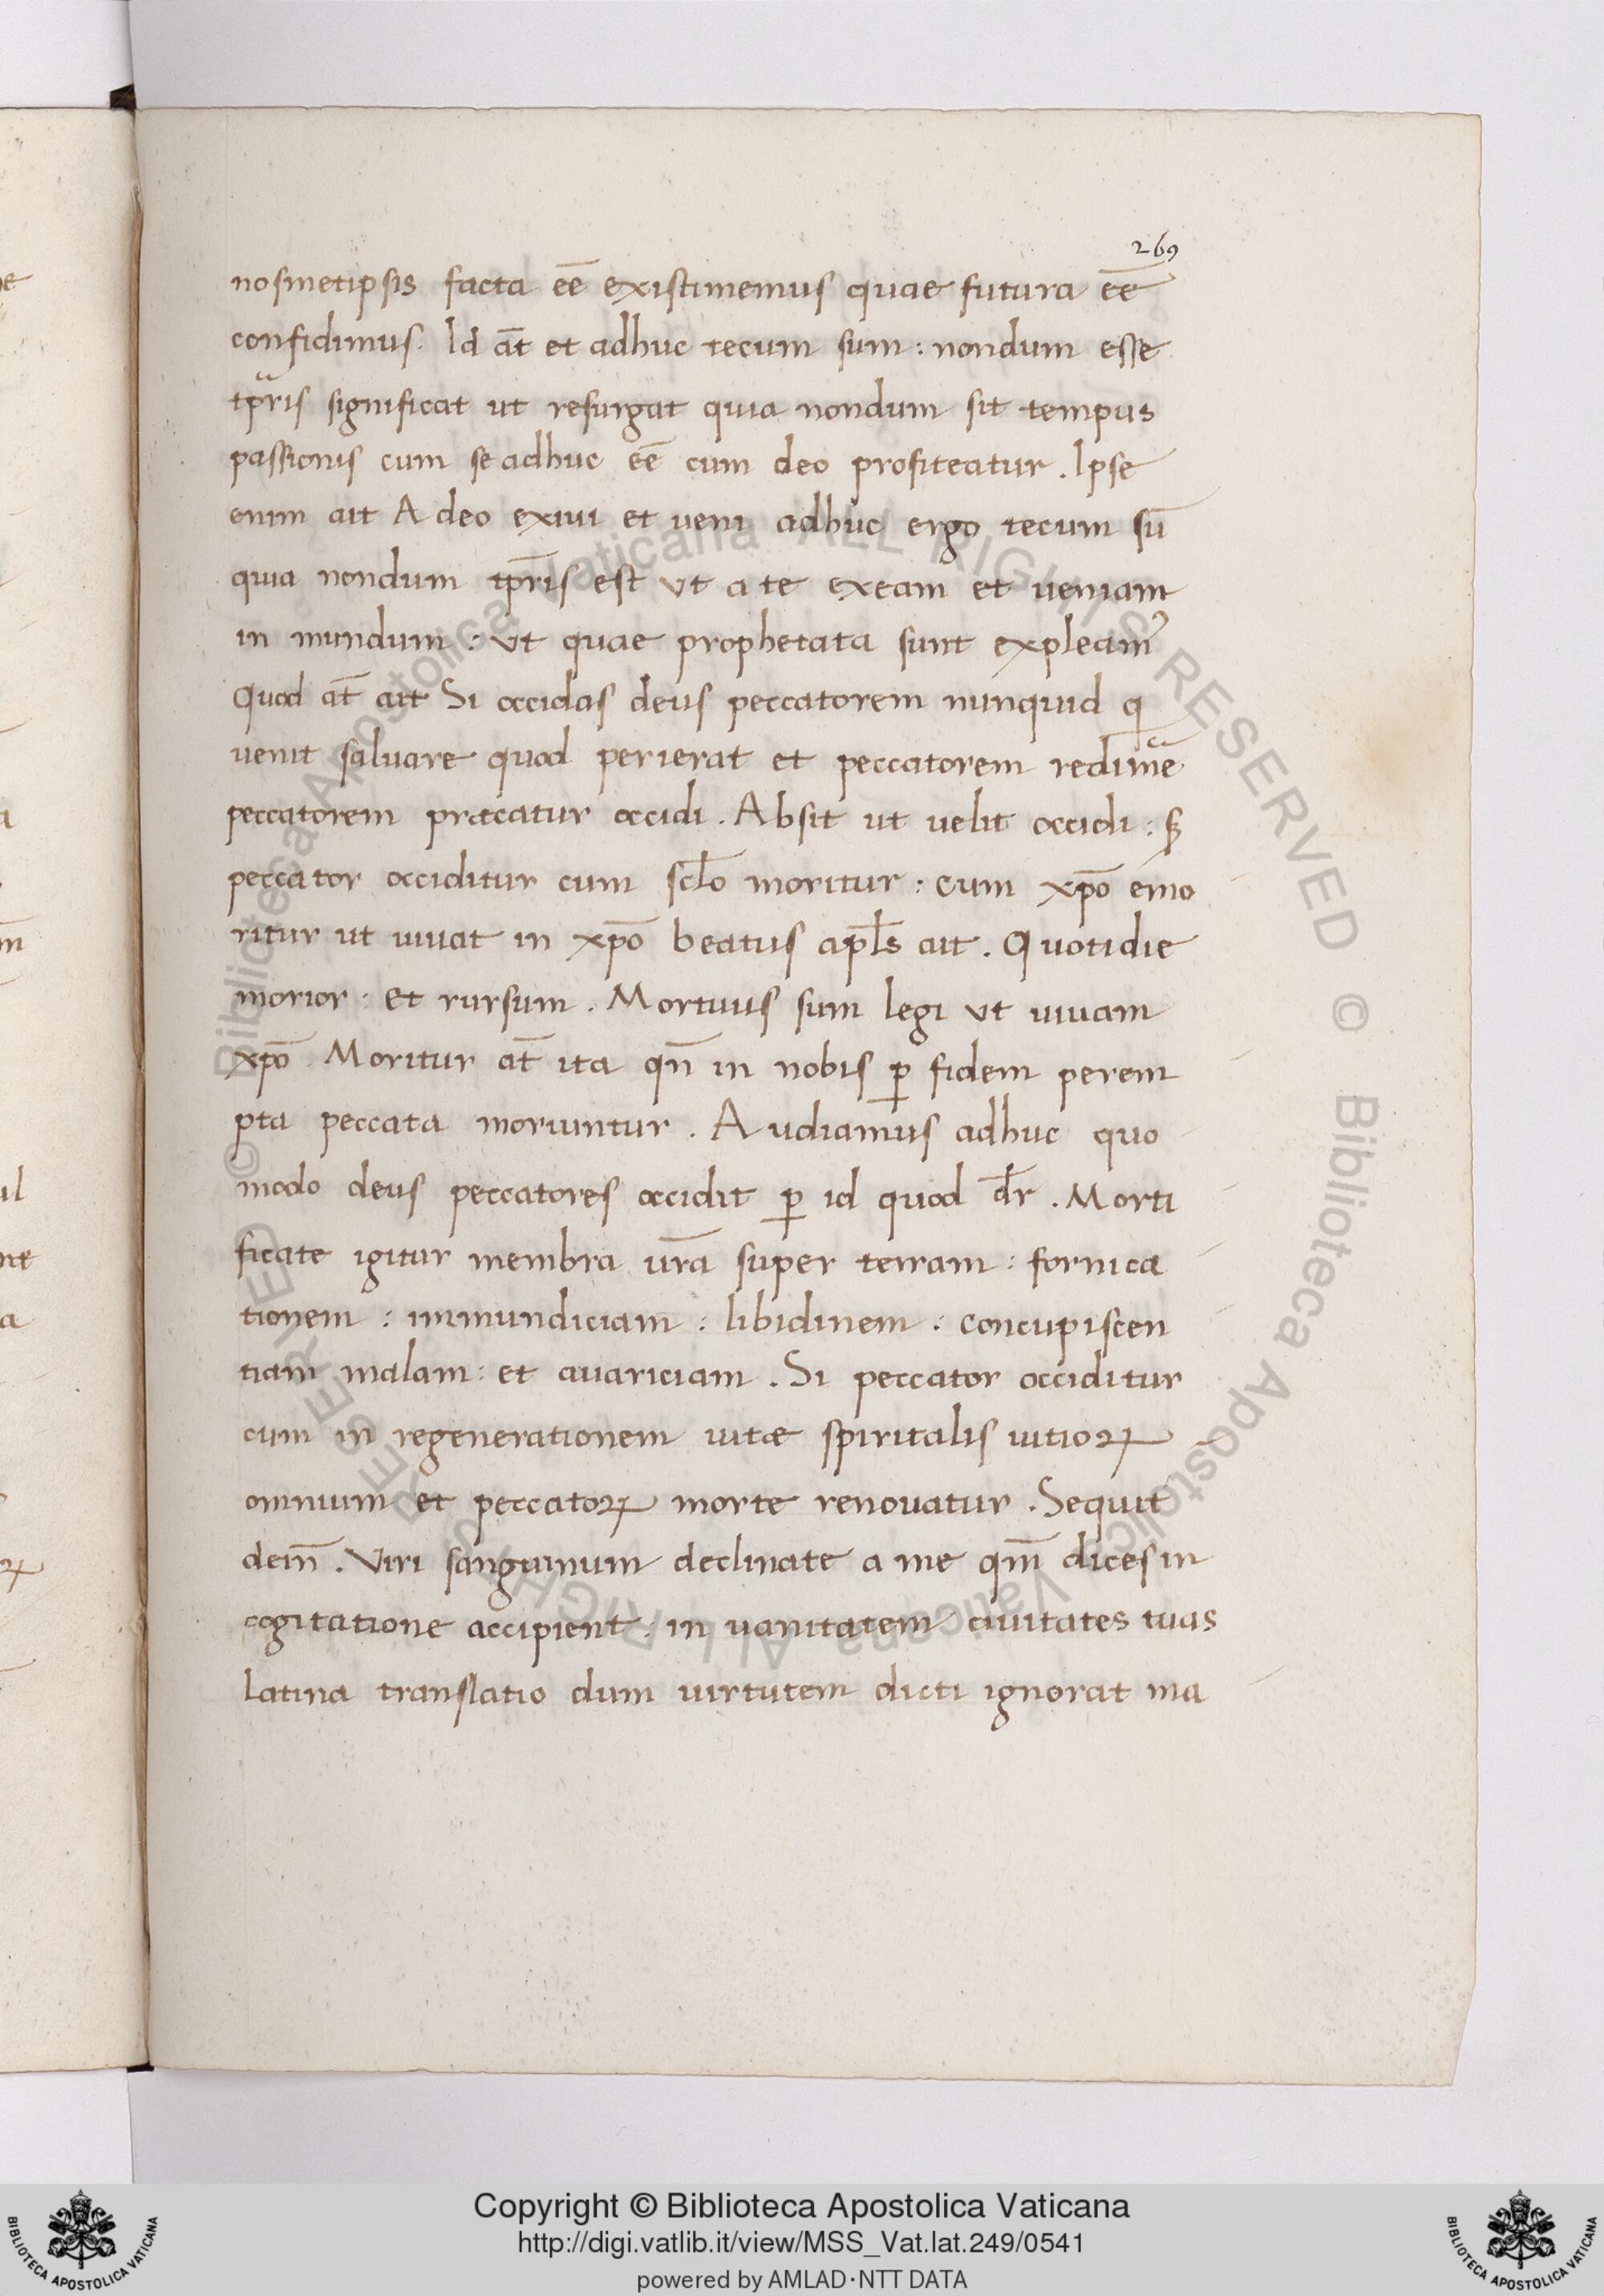 269
nosmetipsis facta eē existimemus quae futura eē
confidimus. Id āt et adhuc tecum sum: nondum esse
tp̄ris significat ut resurgat quia nondum sit tempus
passionis cum se adhuc eē cum deo profiteatur. Ipse
enim ait A deo exiui et ueni adhuc ergo tecum sū
quia nondum tp̄ris est ut a te exeam et ueniam
in mundum: ut quae prophetata sunt expleam᷒
Quod āt ait Si occidas deus peccatorem nunquid q
uenit saluare quod perierat et peccatorem redimē
peccatorem præcatur occidi. Absit ut uelit occidi: sꝫ
peccator occiditur cum scl̄o moritur: cum xp̄o emo
ritur ut uiuat in xp̄o beatus apl̄s ait. Quotidie
morior: et rursum. Mortuus sum legi ut uiuam
xp̄o. Moritur āt ita qn̄ in nobis ꝑ fidem perem
pta peccata moriuntur. Audiamus adhuc quo
modo deus peccatores occidit ꝑ id quod dr̄. Morti
ficate igitur membra ur̄a super terram: fornica
tionem: immundiciam: libidinem: concupiscen
tiam malam: et auariciam. Si peccator occiditur
cum in regenerationem uitæ spiritalis uitioꝝ
omnium et peccatoꝝ morte renouatur. Sequit
dein̄. Viri sanguinum declinate a me qm̄ dices in
cogitatione accipient: in uanitatem ciuitates tuas
Latina translatio dum uirtutem dicti ignorat ma
© Biblioteca Apostolica Vaticana ALL RIGHTS RESERVED © Biblioteca Apostolica Vaticana ALL RIGHTS RESERVED
Copyright © Biblioteca Apostolica Vaticana
http://digi.vatlib.it/view/MSS_Vat.lat.249/0541
powered by AMLAD·NTT DATA
BIBLIOTECA APOSTOLICA VATICANA
BIBLIOTECA APOSTOLICA VATICANA